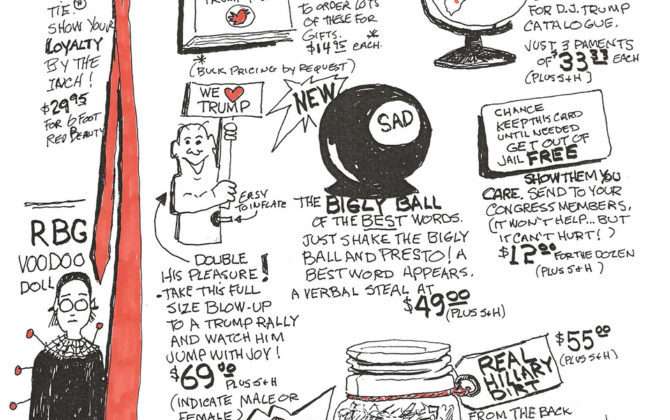 TIE!®
SHOW YOUR
LOYALTY
BY THE
INCH!
$29.95
FOR 6 FOOT
RED BEAUTY
TO ORDER LOTS
OF THESE FOR
GIFTS.
$14.95 EACH.*
*
(BULK PRICING BY REQUEST)
FOR D.J. TRUMP
CATALOGUE.
JUST 3 PAMENTS
OF $33.33 EACH
(PLUS S+H)
WE ❤ TRUMP
EASY
TO INFLATE
DOUBLE
HIS PLEASURE!
TAKE THIS FULL
SIZE BLOW-UP
TO A TRUMP RALLY
AND WATCH HIM
JUMP WITH JOY!
$69.00 PLUS S+H
(INDICATE MALE OR
FEMALE)
NEW
SAD
THE BIGLY BALL
OF THE BEST WORDS.
JUST SHAKE THE BIGLY
BALL AND PRESTO! A
BEST WORD APPEARS.
A VERBAL STEAL AT
$49.00 (PLUS S+H)
CHANCE
KEEP THIS CARD
UNTIL NEEDED
GET OUT OF
JAIL FREE
SHOW THEM YOU
CARE, SEND TO YOUR
CONGRESS MEMBERS.
(IT WON'T HELP... BUT
IT CAN'T HURT!)
$12.00 FOR THE DOZEN
(PLUS S+H)
RBG
VOODOO
DOLL
REAL
HILLARY
DIRT
$55.00
(PLUS S+H)
FROM THE BACK